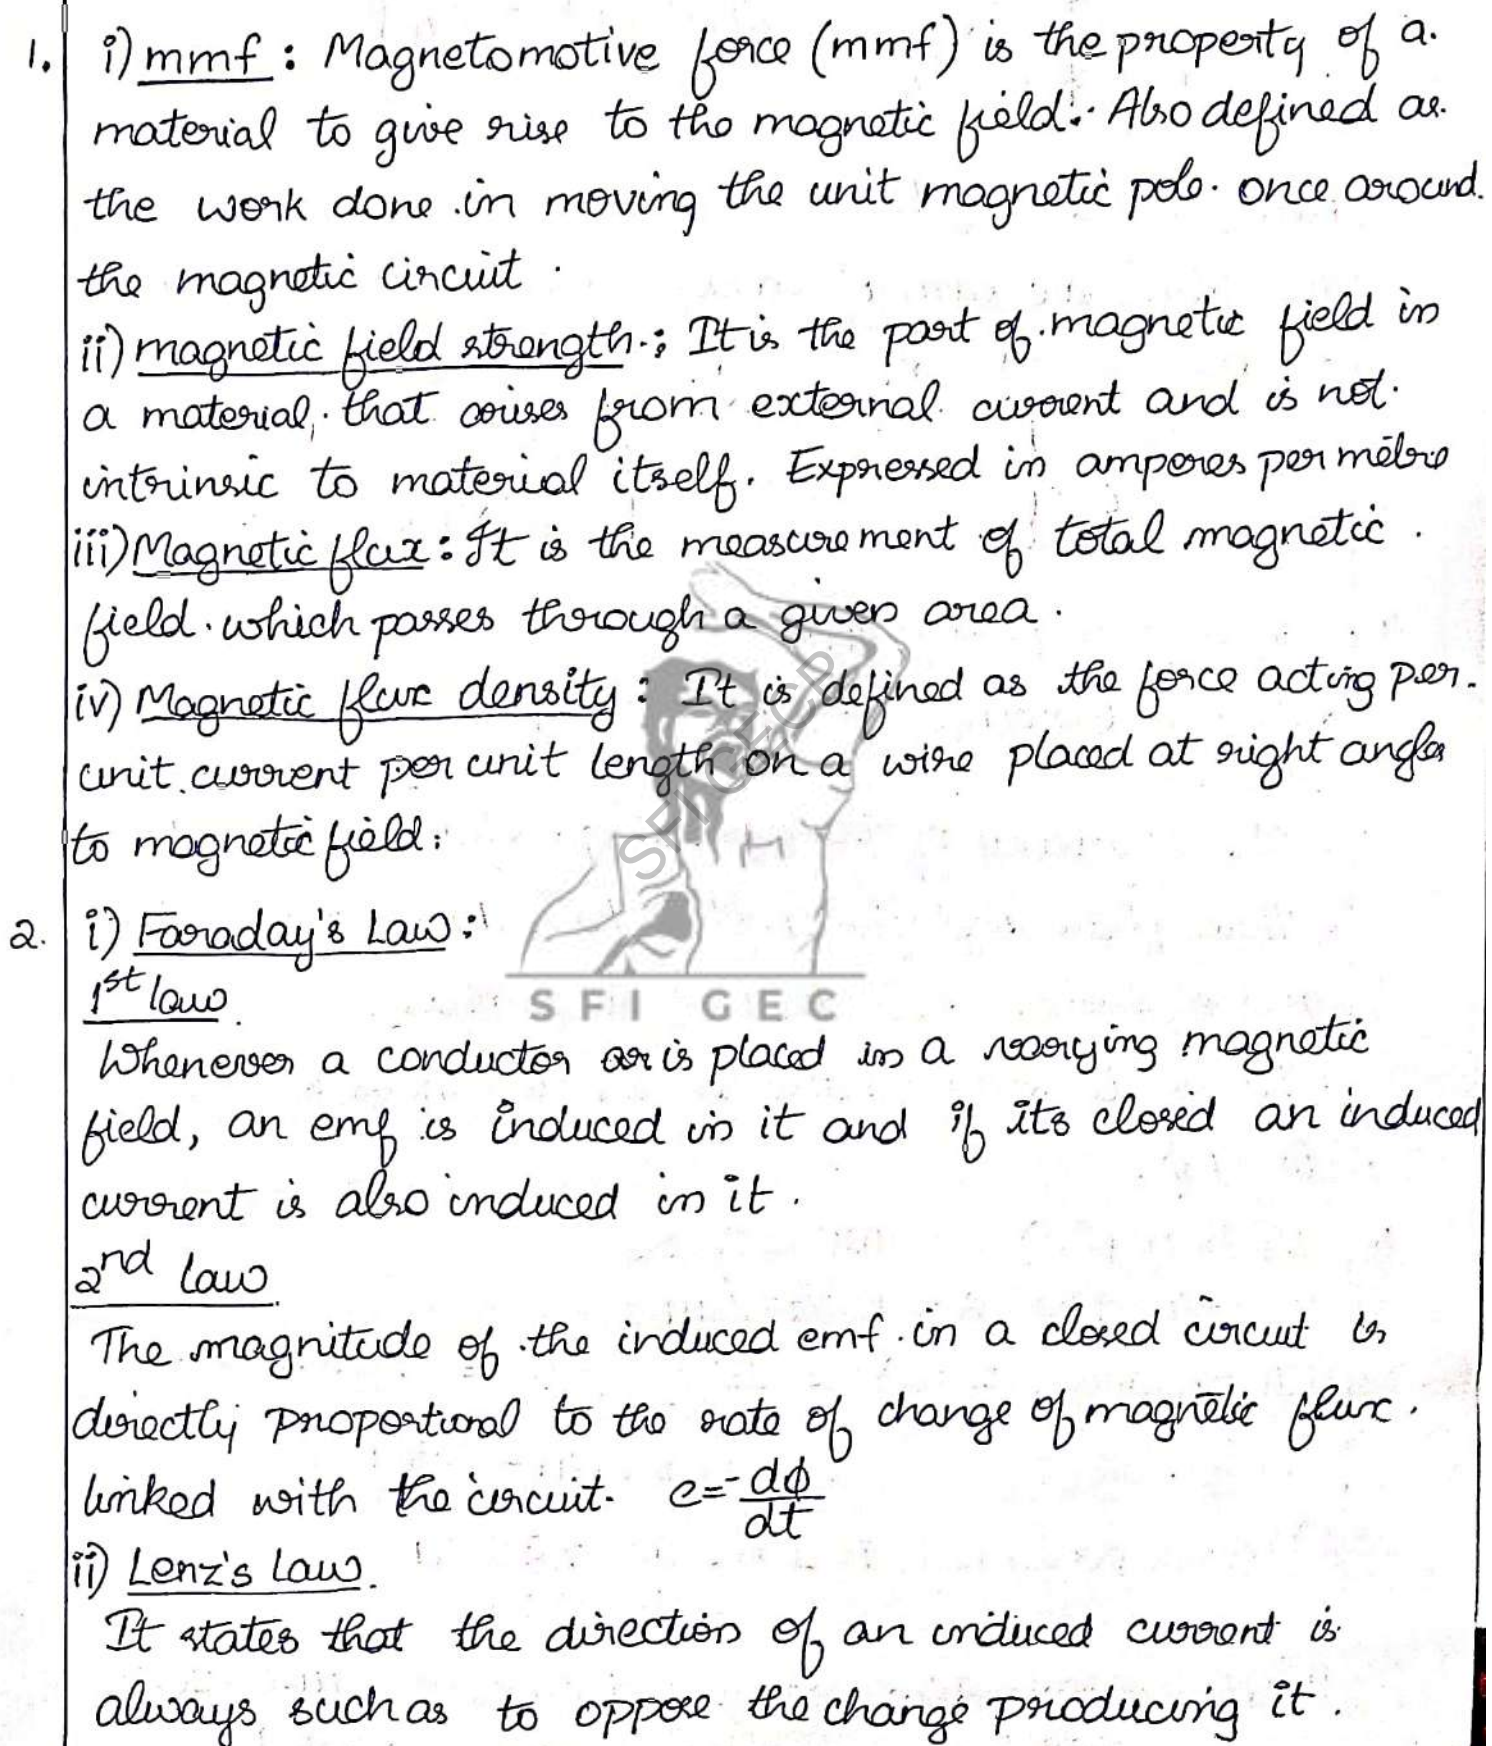 1. i) mmf : Magnetomotive force (mmf) is the property of a
material to give rise to the magnetic field. Also defined as
the work done in moving the unit magnetic pole once around
the magnetic circuit.
ii) magnetic field strength : It is the part of magnetic field in
a material that arises from external current and is not
intrinsic to material itself. Expressed in amperes per metre
iii) Magnetic flux : It is the measurement of total magnetic
field which passes through a given area.
iv) Magnetic flux density : It is defined as the force acting per
unit current per unit length on a wire placed at right angles
to magnetic field.
SFI GECP
2. i) Faraday's Law :
1st law
SFI GEC
Whenever a conductor is placed in a varying magnetic
field, an emf is induced in it and if its closed an induced
current is also induced in it.
2nd law
The magnitude of the induced emf in a closed circuit is
directly proportional to the rate of change of magnetic flux
linked with the circuit. e = -dϕ/dt
ii) Lenz's Law
It states that the direction of an induced current is
always such as to oppose the change producing it.